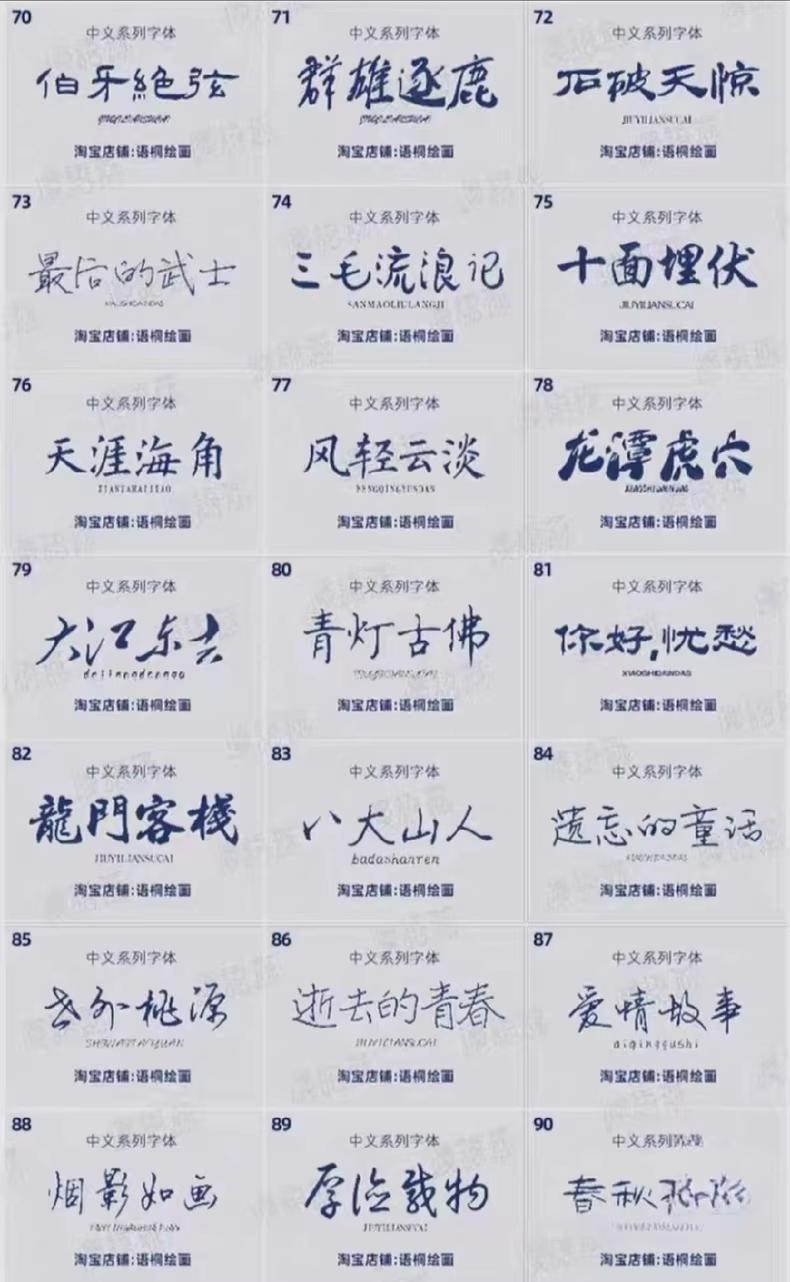 70
中文系列字体
伯牙絶弦
淘宝店铺:语桐绘画
71
中文系列字体
群雄逐鹿
淘宝店铺:语桐绘画
72
中文系列字体
石破天惊
JIUYILIANSUCAI
淘宝店铺:语桐绘画
73
中文系列字体
最后的武士
淘宝店铺:语桐绘画
74
中文系列字体
三毛流浪记
SANMAOLIULANGJI
淘宝店铺:语桐绘画
75
中文系列字体
十面埋伏
JIUYILIANSUCAI
淘宝店铺:语桐绘画
76
中文系列字体
天涯海角
淘宝店铺:语桐绘画
77
中文系列字体
风轻云淡
淘宝店铺:语桐绘画
78
中文系列字体
龙潭虎穴
淘宝店铺:语桐绘画
79
中文系列字体
大江东去
淘宝店铺:语桐绘画
80
中文系列字体
青灯古佛
淘宝店铺:语桐绘画
81
中文系列字体
你好,忧愁
XIAOSHIDANDAS
淘宝店铺:语桐绘画
82
中文系列字体
龍門客棧
JIUYILIANSUCAI
淘宝店铺:语桐绘画
83
中文系列字体
八大山人
badashanren
淘宝店铺:语桐绘画
84
中文系列字体
遗忘的童话
淘宝店铺:语桐绘画
85
中文系列字体
世外桃源
SHIWAITAOYUAN
淘宝店铺:语桐绘画
86
中文系列字体
逝去的青春
JIUYILIANSUCAI
淘宝店铺:语桐绘画
87
中文系列字体
爱情故事
aiqinggushi
淘宝店铺:语桐绘画
88
中文系列字体
烟影如画
淘宝店铺:语桐绘画
89
中文系列字体
厚德载物
JIUYILIANSUCAI
淘宝店铺:语桐绘画
90
中文系列
春秋
淘宝店铺:语桐绘画